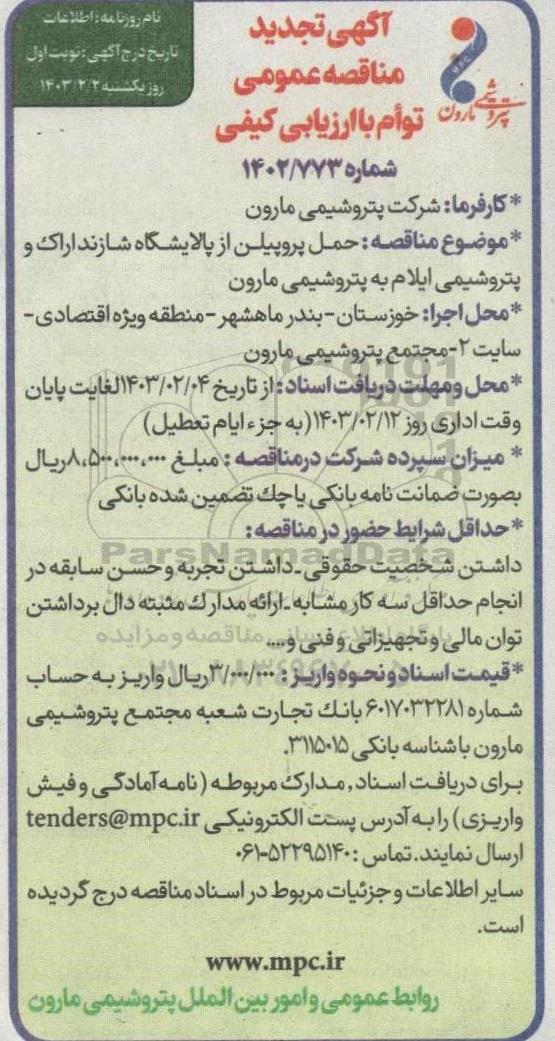 نام روزنامه: اطلاعات
تاریخ درج آگهی: نوبت اول
روز یکشنبه ۱۴۰۳/۲/۲
MPC
پتروشیمی مارون
آگهی تجدید
مناقصه عمومی
توأم با ارزیابی کیفی
شماره ۱۴۰۲/۷۷۳
*کارفرما: شرکت پتروشیمی مارون
*موضوع مناقصه: حمل پروپیلن از پالایشگاه شازند اراک و
پتروشیمی ایلام به پتروشیمی مارون
*محل اجرا: خوزستان-بندر ماهشهر-منطقه ویژه اقتصادی-
سایت ۲-مجتمع پتروشیمی مارون
*محل و مهلت دریافت اسناد: از تاریخ ۱۴۰۳/۰۲/۰۴ لغایت پایان
وقت اداری روز ۱۴۰۳/۰۲/۱۲ (به جزء ایام تعطیل)
* میزان سپرده شرکت در مناقصه: مبلغ ۸،۵۰۰،۰۰۰،۰۰۰ ریال
بصورت ضمانت نامه بانکی یا چك تضمین شده بانکی
*حداقل شرایط حضور در مناقصه:
ParsNamadData
داشتن شخصیت حقوقی-داشتن تجربه و حسن سابقه در
انجام حداقل سه کار مشابه-ارائه مدارك مثبته دال بر داشتن
توان مالی و تجهیزاتی و فنی و....
*قیمت اسناد و نحوه واریز: ۳/۰۰۰/۰۰۰ ریال واریز به حساب
شماره ۶۰۱۷۰۳۲۲۸۱ بانك تجارت شعبه مجتمع پتروشیمی
مارون با شناسه بانکی ۳۱۱۵۰۱۵.
برای دریافت اسناد، مدارك مربوطه (نامه آمادگی و فیش
واریزی) را به آدرس پست الکترونیکی tenders@mpc.ir
ارسال نمایند. تماس: ۵۲۲۹۵۱۴۰-۰۶۱
سایر اطلاعات و جزئیات مربوط در اسناد مناقصه درج گردیده
است.
www.mpc.ir
روابط عمومی و امور بین الملل پتروشیمی مارون